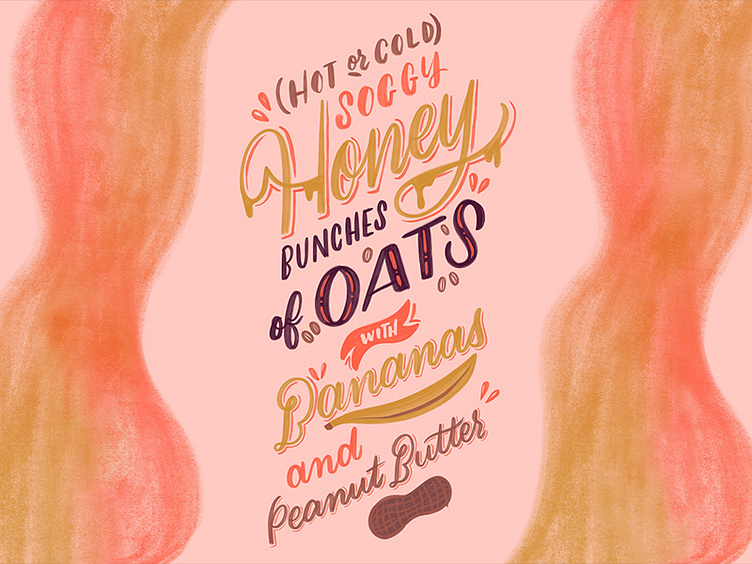 (HOT or COLD)
SOGGY
Honey
BUNCHES
of OATS
WITH
Bananas
and
Peanut Butter